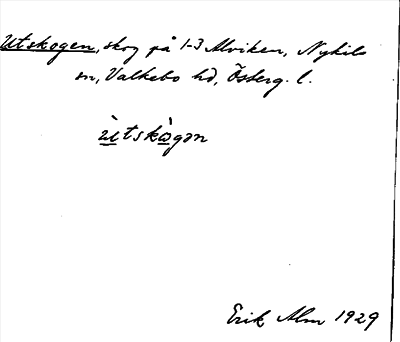 Utskogen, skog på 1-3 Alviken, Nykils
sn, Valkebo hd, Österg. l.
ùtskògən
Erik Alm 1929